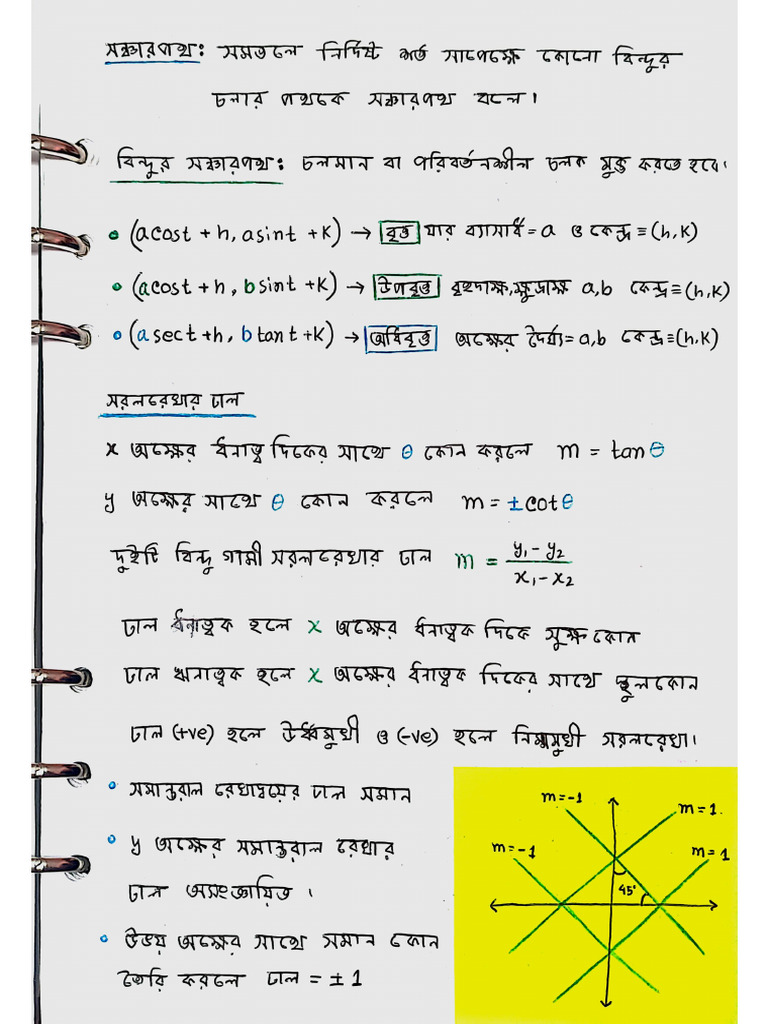 সঞ্চারপথ: সমতলে নির্দিষ্ট শর্ত সাপেক্ষে কোনো বিন্দুর
চলার পথকে সঞ্চারপথ বলে।
বিন্দুর সঞ্চারপথ: চলমান বা পরিবর্তনশীল চলক মুক্ত করতে হবে।
• (acost + h, asint + K) → বৃত্ত যার ব্যাসার্ধ = a ও কেন্দ্র ≡ (h, K)
• (acost + h, bsint + K) → উপবৃত্ত বৃহদাক্ষ, ক্ষুদ্রাক্ষ a, b কেন্দ্র ≡ (h, K)
• (asect + h, btant + K) → অধিবৃত্ত অক্ষের দৈর্ঘ্য = a, b কেন্দ্র ≡ (h, K)
সরলরেখার ঢাল
x অক্ষের ধনাত্মক দিকের সাথে θ কোন করলে m = tanθ
y অক্ষের সাথে θ কোন করলে m = ±cotθ
দুইটি বিন্দু গামী সরলরেখার ঢাল m = (y₁ - y₂)/(x₁ - x₂)
ঢাল ধনাত্মক হলে x অক্ষের ধনাত্মক দিকে সূক্ষ কোন
ঢাল ঋনাত্বক হলে x অক্ষের ধনাত্বক দিকের সাথে স্থুলকোন
ঢাল (+ve) হলে উর্ধ্বমুখী ও (-ve) হলে নিম্নমুখী সরলরেখা।
• সমান্তরাল রেখাদ্বয়ের ঢাল সমান
• y অক্ষের সমান্তরাল রেখার
ঢাল অসংজ্ঞায়িত।
• উভয় অক্ষের সাথে সমান কোন
তৈরি করলে ঢাল = ± 1
m = -1
m = 1
m = -1
m = 1
45°